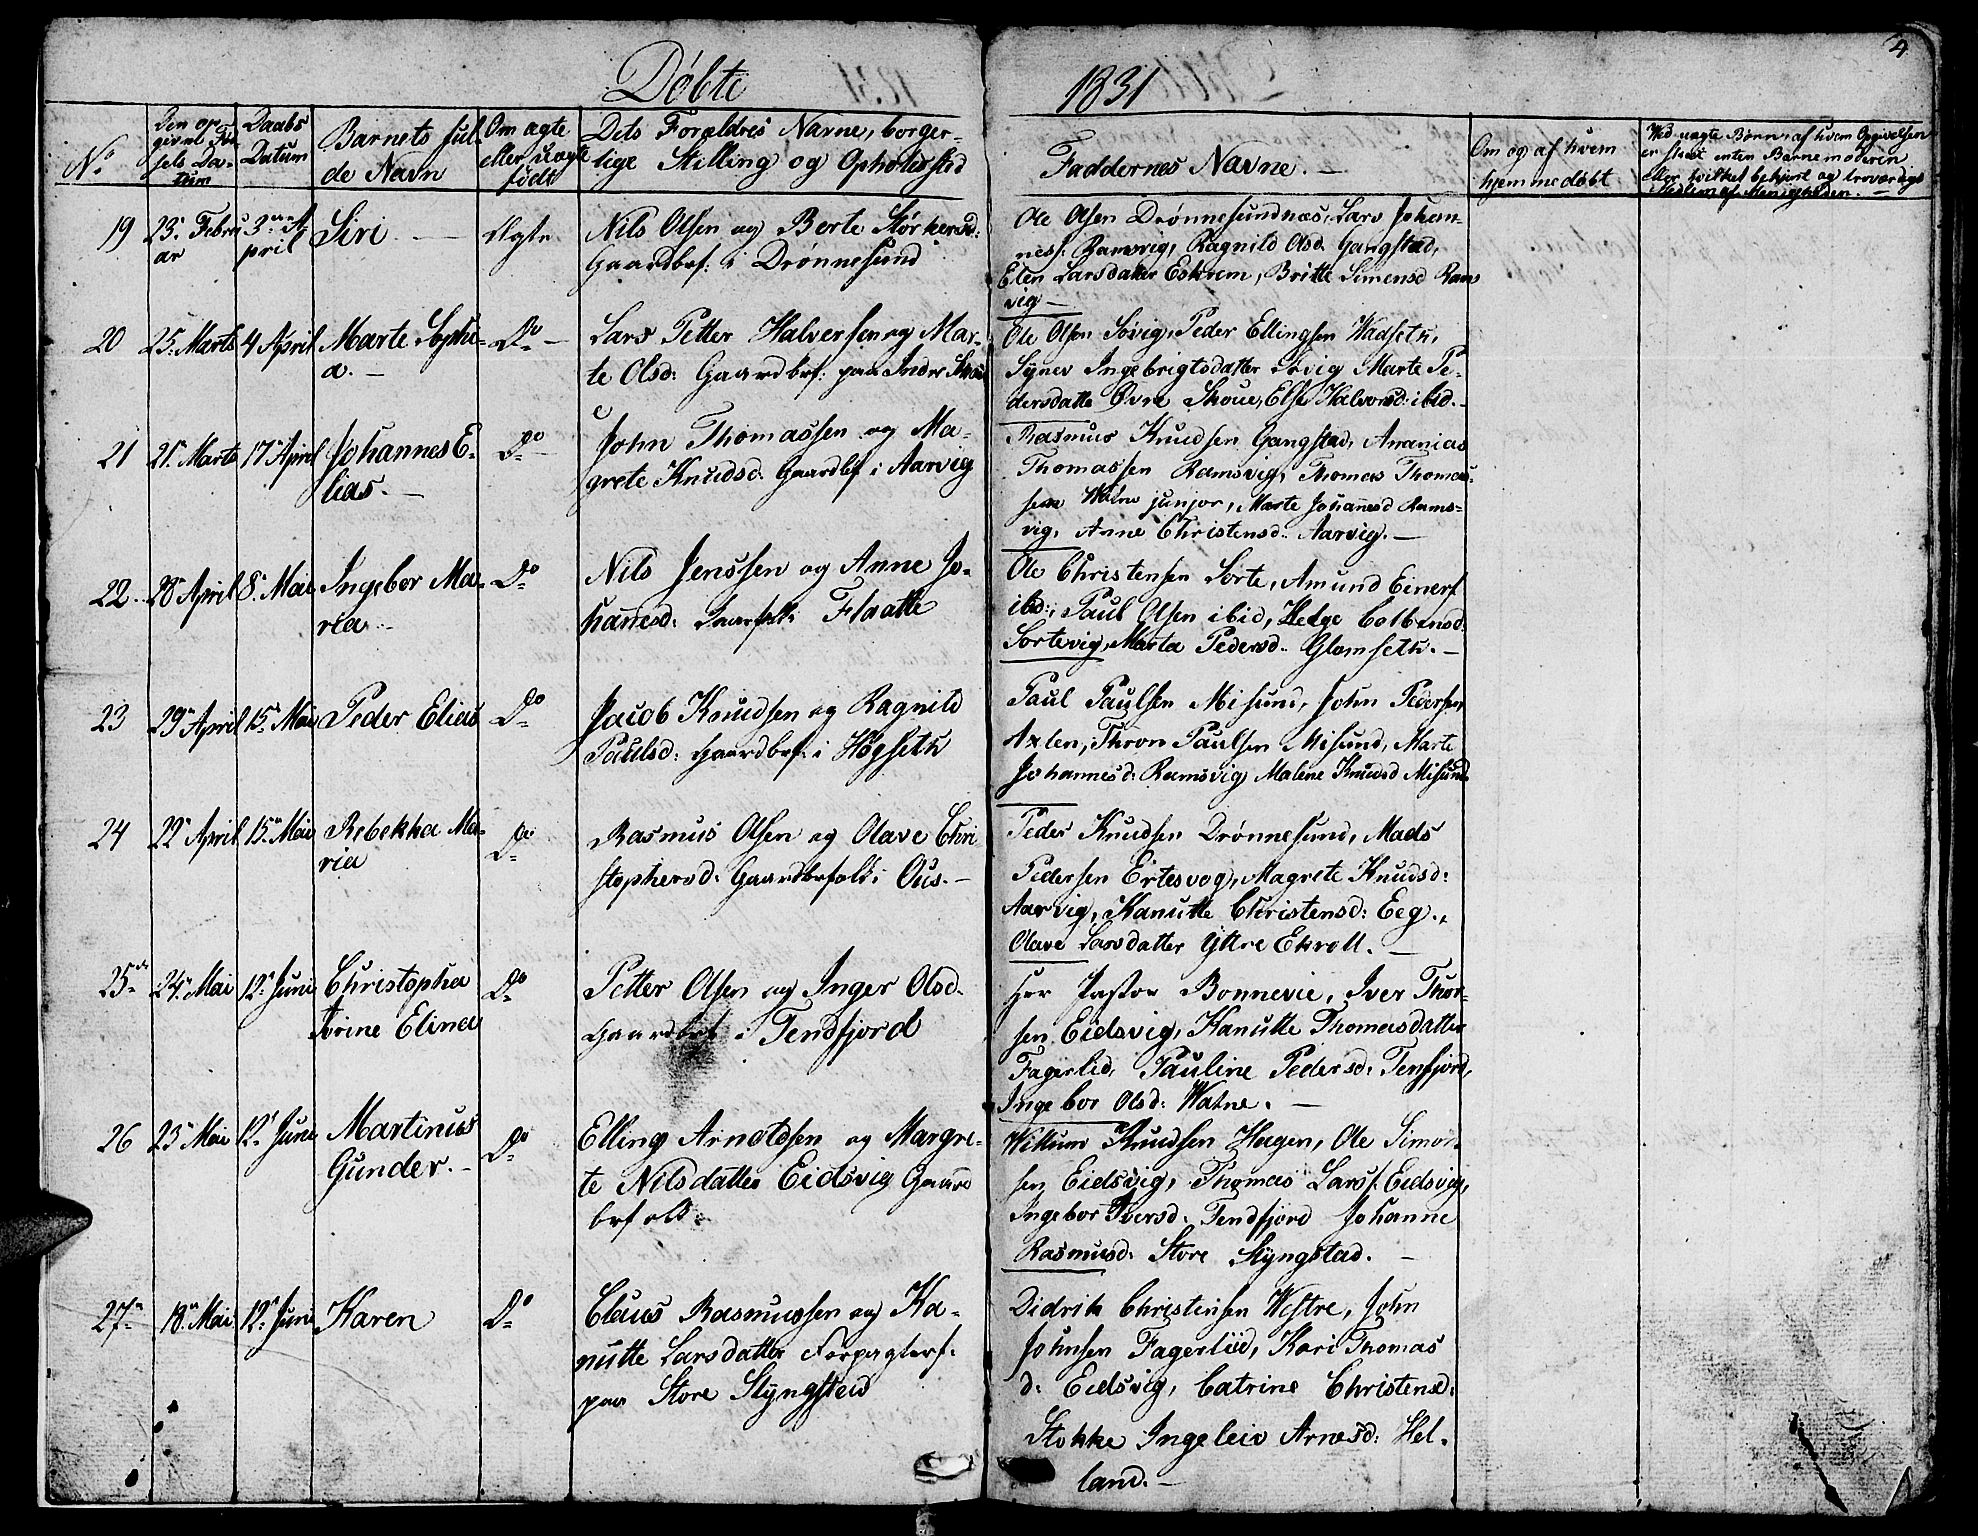 4
Døbte 1831
No
Den op-
givne Fød-
sels Da-
tum
Daabs
Datum
Barnets ful-
de Navn
Om ægte
eller uægte
født
Dets Forældres Navne, borger-
lige Stilling og Opholdssted
Faddernes Navne. -
Om og af hvem
hjemmedøbt
Ved uægte Børn, af hvem Opgivelsen
er skeet enten Barnemoderen
eller hvilket bekjent og troværdigt
Medlem af Menigheden. -
19
23. Febru
ar
3die A-
pril
Siri
Ægte
Nils Olsen og Berte Størkersd:
Gaardbrf: i Drønnesund
Ole Olsen Drønnesundnæs, Lars Johan-
nesf: Ramsvig, Ragnild Olsd. Gangstad,
Elen Larsdatter Eskrem, Britte Simensd Ram
vig -
20
25. Marts
4 April
Marte Sophi-
a. -
Do -
Lars Petter Halversen og Mar-
te Olsd: Gaardbrf: paa Indre
Ole Olsen Søvig, Peder Ellingsen Wadseth,
Synev Ingebrigtsdatter Søvig Marte Pe-
dersdatte Øvre Skoue, Else Halvorsd: ibid. -
21
21. Marts
17 April
Johannes E-
lias. -
Do
John Thomassen og Ma-
grete Knudsd. Gaardbf i Aarvig
Rasmus Knudsen Gangstad, Ananias
Thomassen Ramsvig, Thomas Thomas-
sen Watne junjor, Marte Johanesd Rams-
vig, Anne Christensd. Aarvig. -
22
28 April
8. Mai
Ingebor Ma-
ria
Do
Nils Jenssen og Anne Jo-
hanesd: i Flaatte
Ole Christensen Sorte, Amund Einersf
ibd:, Paul Olsen ibid, Helge Colbensd.
Sortevig, Marta Pedersd. Glomseth. -
23
29 April
15. Mai
Peder Elias
Do
Jacob Knudsen og Ragnild
Paulsd: Gaardbrf: i Høgseth
Paul Paulsen Misund, John Pedersen
Axlen, Thron Paulsen Misund, Marte
Johannesd: Ramsvig Malene Knudsd Misund
24
22 April
15. Mai
Rebekka Ma-
ria
Do
Rasmus Olsen og Olave Chri
stophersd. Gaardbrfolk i Ous. -
Peder Knudsen Drønnesund, Mads
Pedersen Ertesvog, Magrete Knudsd:
Aarvig, Kanutte Christensd: Eeg.,
Olave Larsdatter Yttre Ekroll. -
25
24. Mai
12. Juni
Christopha
Ivrine Elina
Do
Petter Olsen og Inger Olsd.
Gaardbrf i Tendfjord
Hr Pastor Bonnevie, Iver Thor-
sen Eidsvig, Kanutte Thomasdatter
Fagerlid, Pauline Pedersd. Tenfjord,
Ingebor Olsd: Watne. -
26
23. Mai
12. Juni
Martinus
Gunder. -
Do
Elling Arnoldsen og Margre-
te Nilsdatter Eidsvig Gaard
brfolk
Willum Knudsen Hagen, Ole Simon
sen Eidsvig, Thomas Larsf. Eidsvig,
Ingebor Iversd. Tendfjord Johanne
Rasmusd: Store Slyngstad. -
27
18. Mai
12. Juni
Karen
Do
Claus Rasmussen og Ka-
nutte Larsdatter Forpagterf.
paa Store Slyngstad
Didrik Christensen Westre, John
Johnsen Fagerlid, Kari Thomas
d: Eidsvig, Catrine Christensd:
Stokke Ingeleiv Arnesd: Hel-
land. -